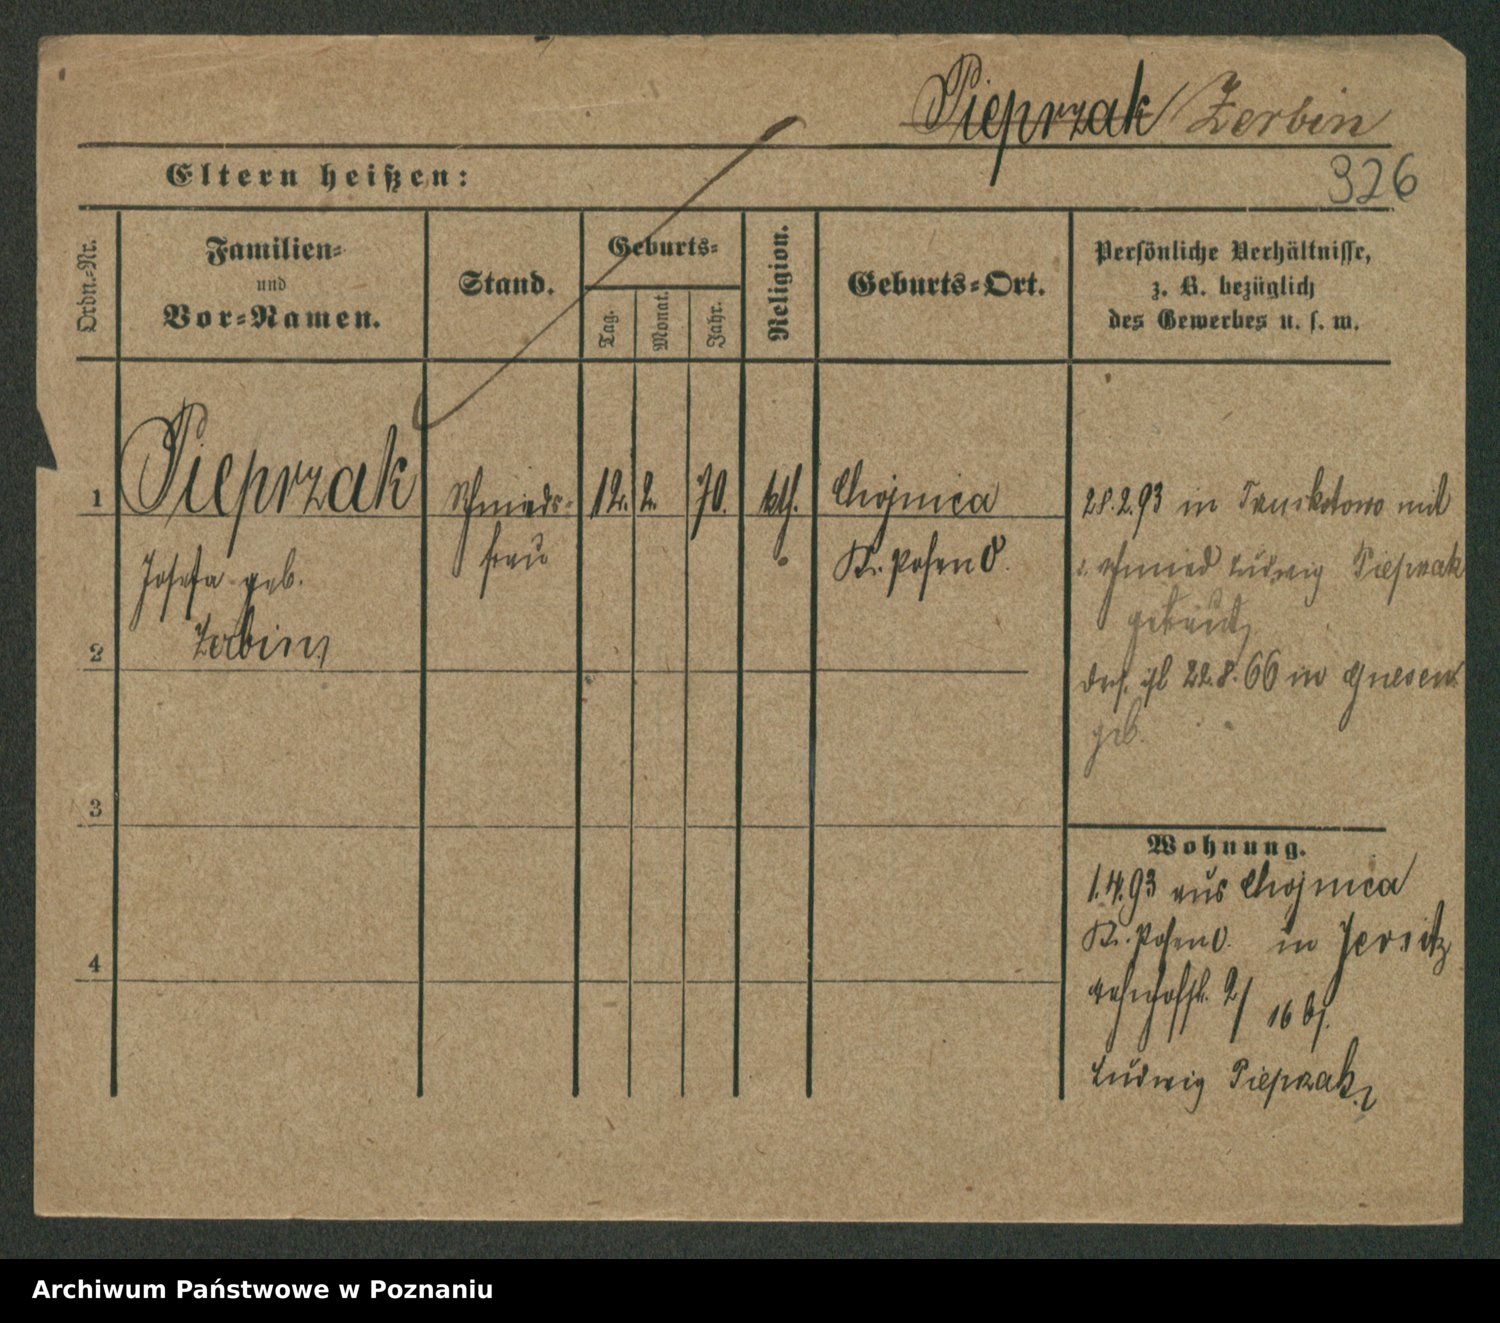 Pieprzak / Zerbin
326
Eltern heißen:
Ordn.-Nr.
Familien-
und
Vor-Namen.
Stand.
Geburts-
Tag.
Monat.
Jahr.
Religion.
Geburts-Ort.
Persönliche Verhältnisse,
z. B. bezüglich
des Gewerbes u. s. w.
1 Pieprzak Schmieds- 12. 2. 70. kth. Chojnica
frau Kr. Posen O.
Josefa geb.
2 Zerbin
3
4
28.2.93 in mit
Schmied Ludwig Pieprzak
getraut,
ders. ist 22.8.66 in Gnesen
geb.
Wohnung.
1.4.93 aus Chojnica
Kr. Posen O. in Jersitz
Bahnhofstr. 2/ 16 bf.
Ludwig Pieprzak
Archiwum Państwowe w Poznaniu